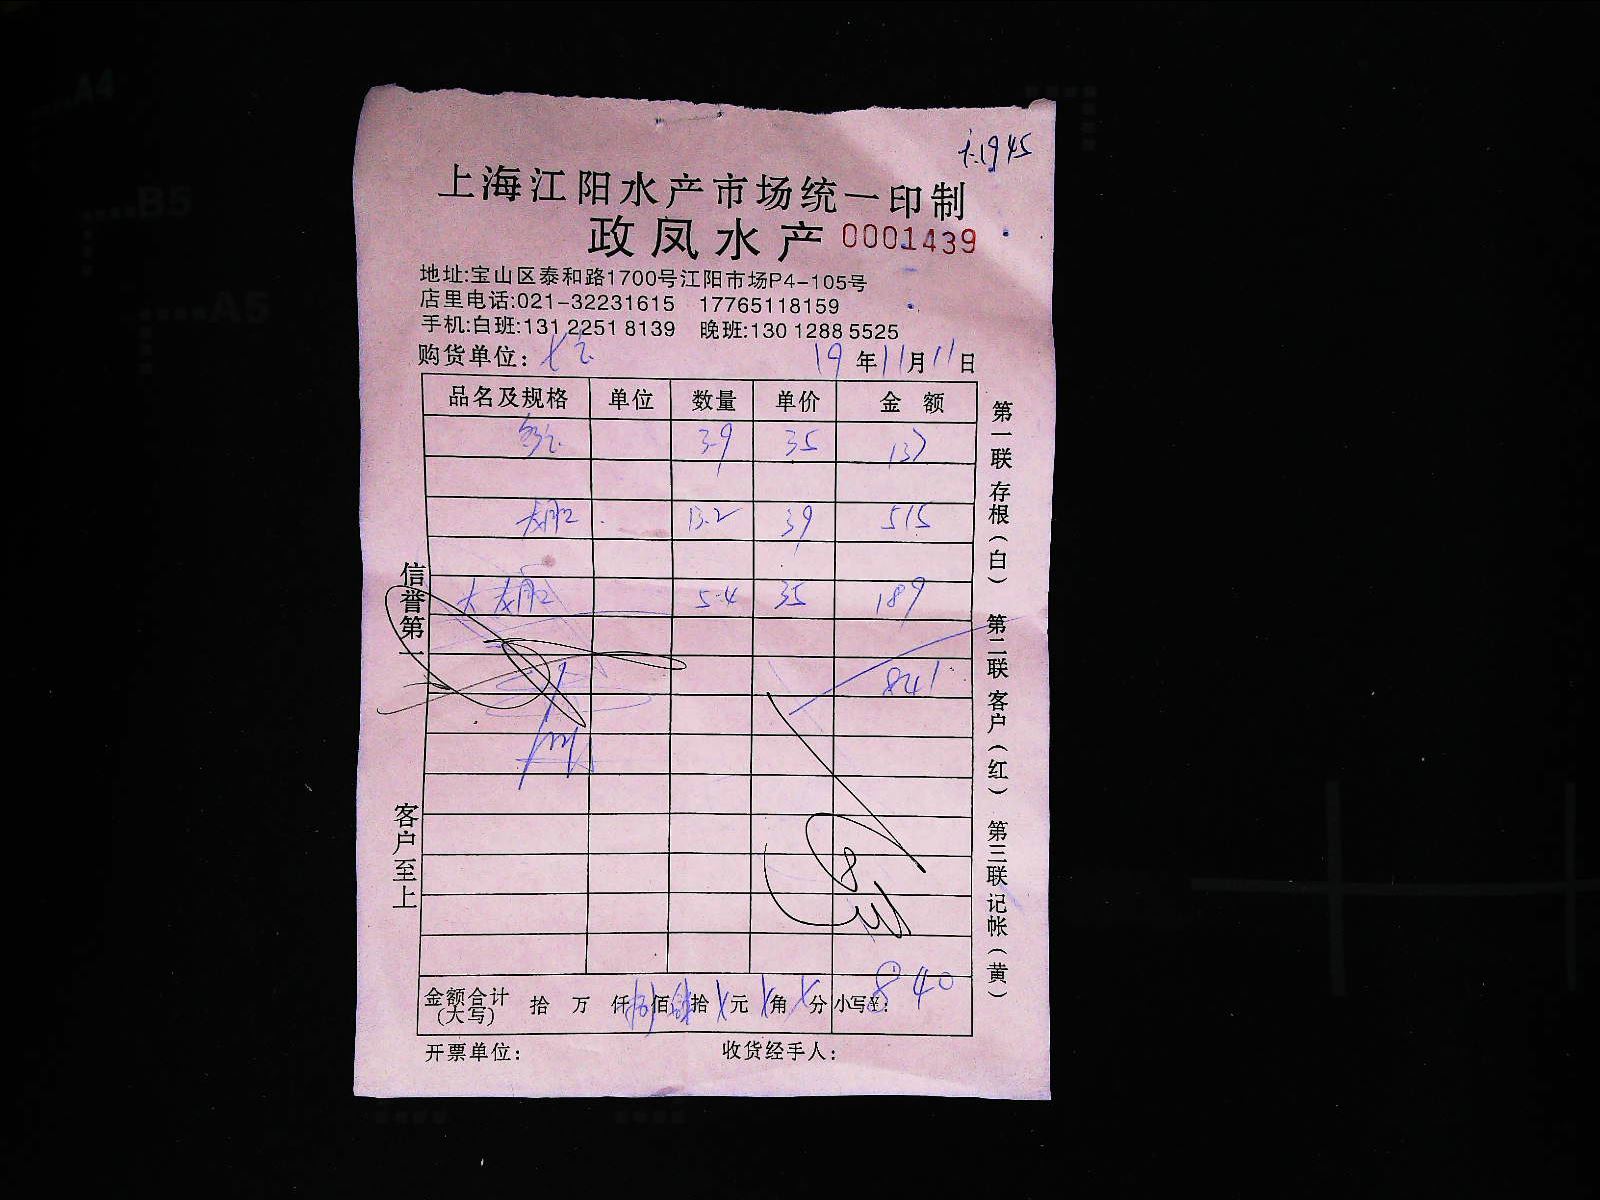 1945
上海江阳水产市场统一印制
政凤水产 0001439
地址:宝山区泰和路1700号江阳市场P4-105号
店里电话:021-32231615 17765118159
手机:白班:131 2251 8139 晚班:130 1288 5525
购货单位: 19年11月11日
品名及规格 单位 数量 单价 金额
3.9 35 137
13.2 39 515
5.4 35 189
841
信誉第一
客户至上
第一联存根(白) 第二联客户(红) 第三联记帐(黄)
金额合计(大写) 拾 万 仟 佰 拾 元 角 分 小写¥: 840
开票单位: 收货经手人:
A4
B5
A5